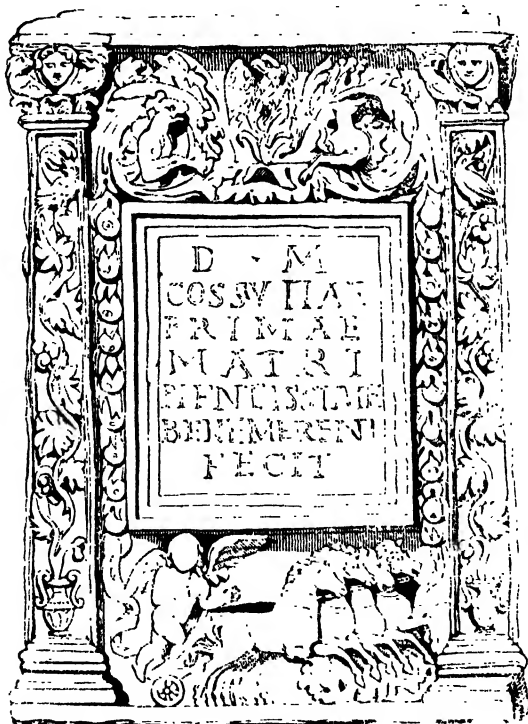 D · M
COSSVTIAE
PRIMAE
MATRI
PIENTISSIMAE
BENEMERENTI
FECIT